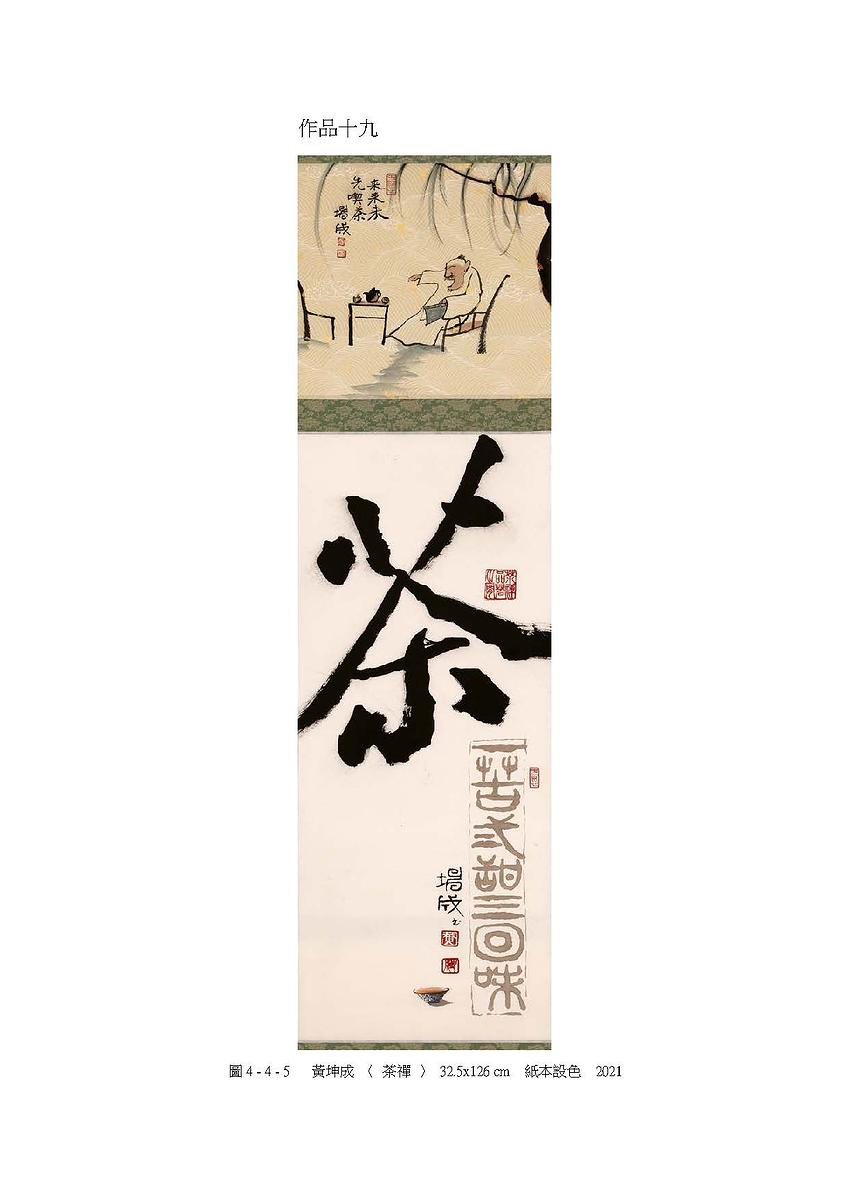 作品十九
来来来
先喫茶
堒成
茶
一苦弍甜三回味
堒成
圖 4 - 4 - 5 黃坤成 〈 茶禪 〉 32.5x126 cm 紙本設色 2021